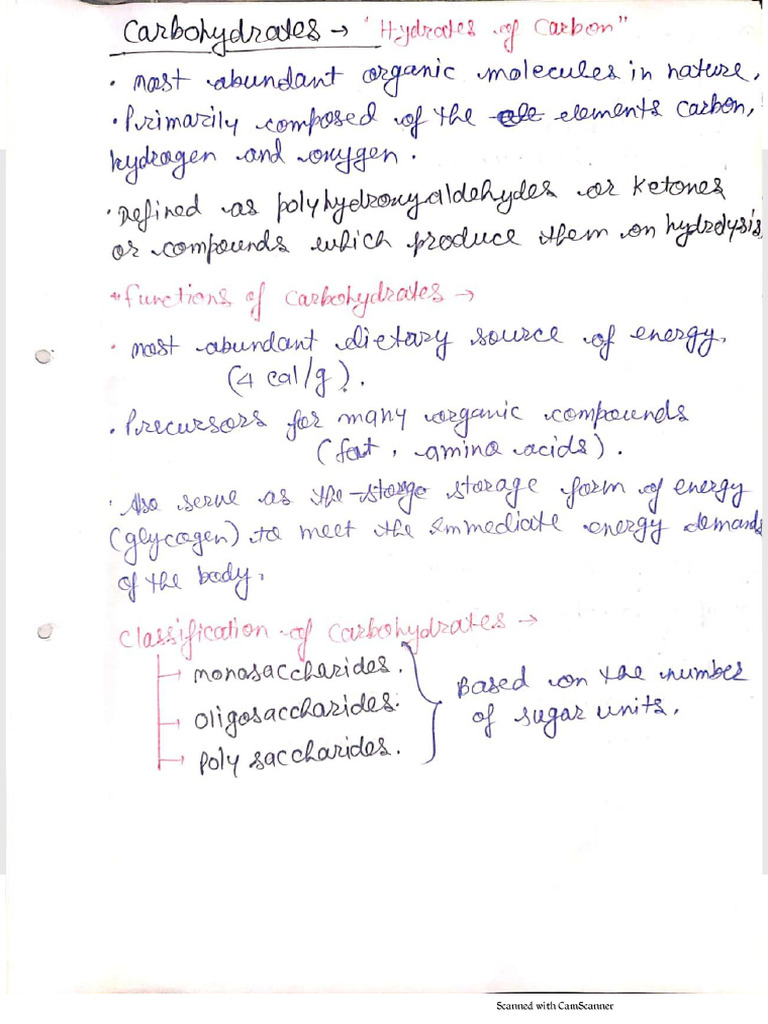 Carbohydrates → "Hydrates of Carbon"
• most abundant organic molecules in nature,
• Primarily composed of the ele elements carbon,
hydrogen and oxygen.
• Defined as polyhydroxyaldehydes or ketones
or compounds which produce them on hydrolysis
*functions of carbohydrates →
• most abundant dietary source of energy.
(4 cal/g).
• Precursors for many organic compounds
(fat, amino acids).
• Also serve as the storge storage form of energy
(glycogen) to meet the immediate energy demands
of the body.
Classification of Carbohydrates →
→ monosaccharides.
Based on the number
→ oligosaccharides.
of sugar units.
→ Poly saccharides.
Scanned with CamScanner